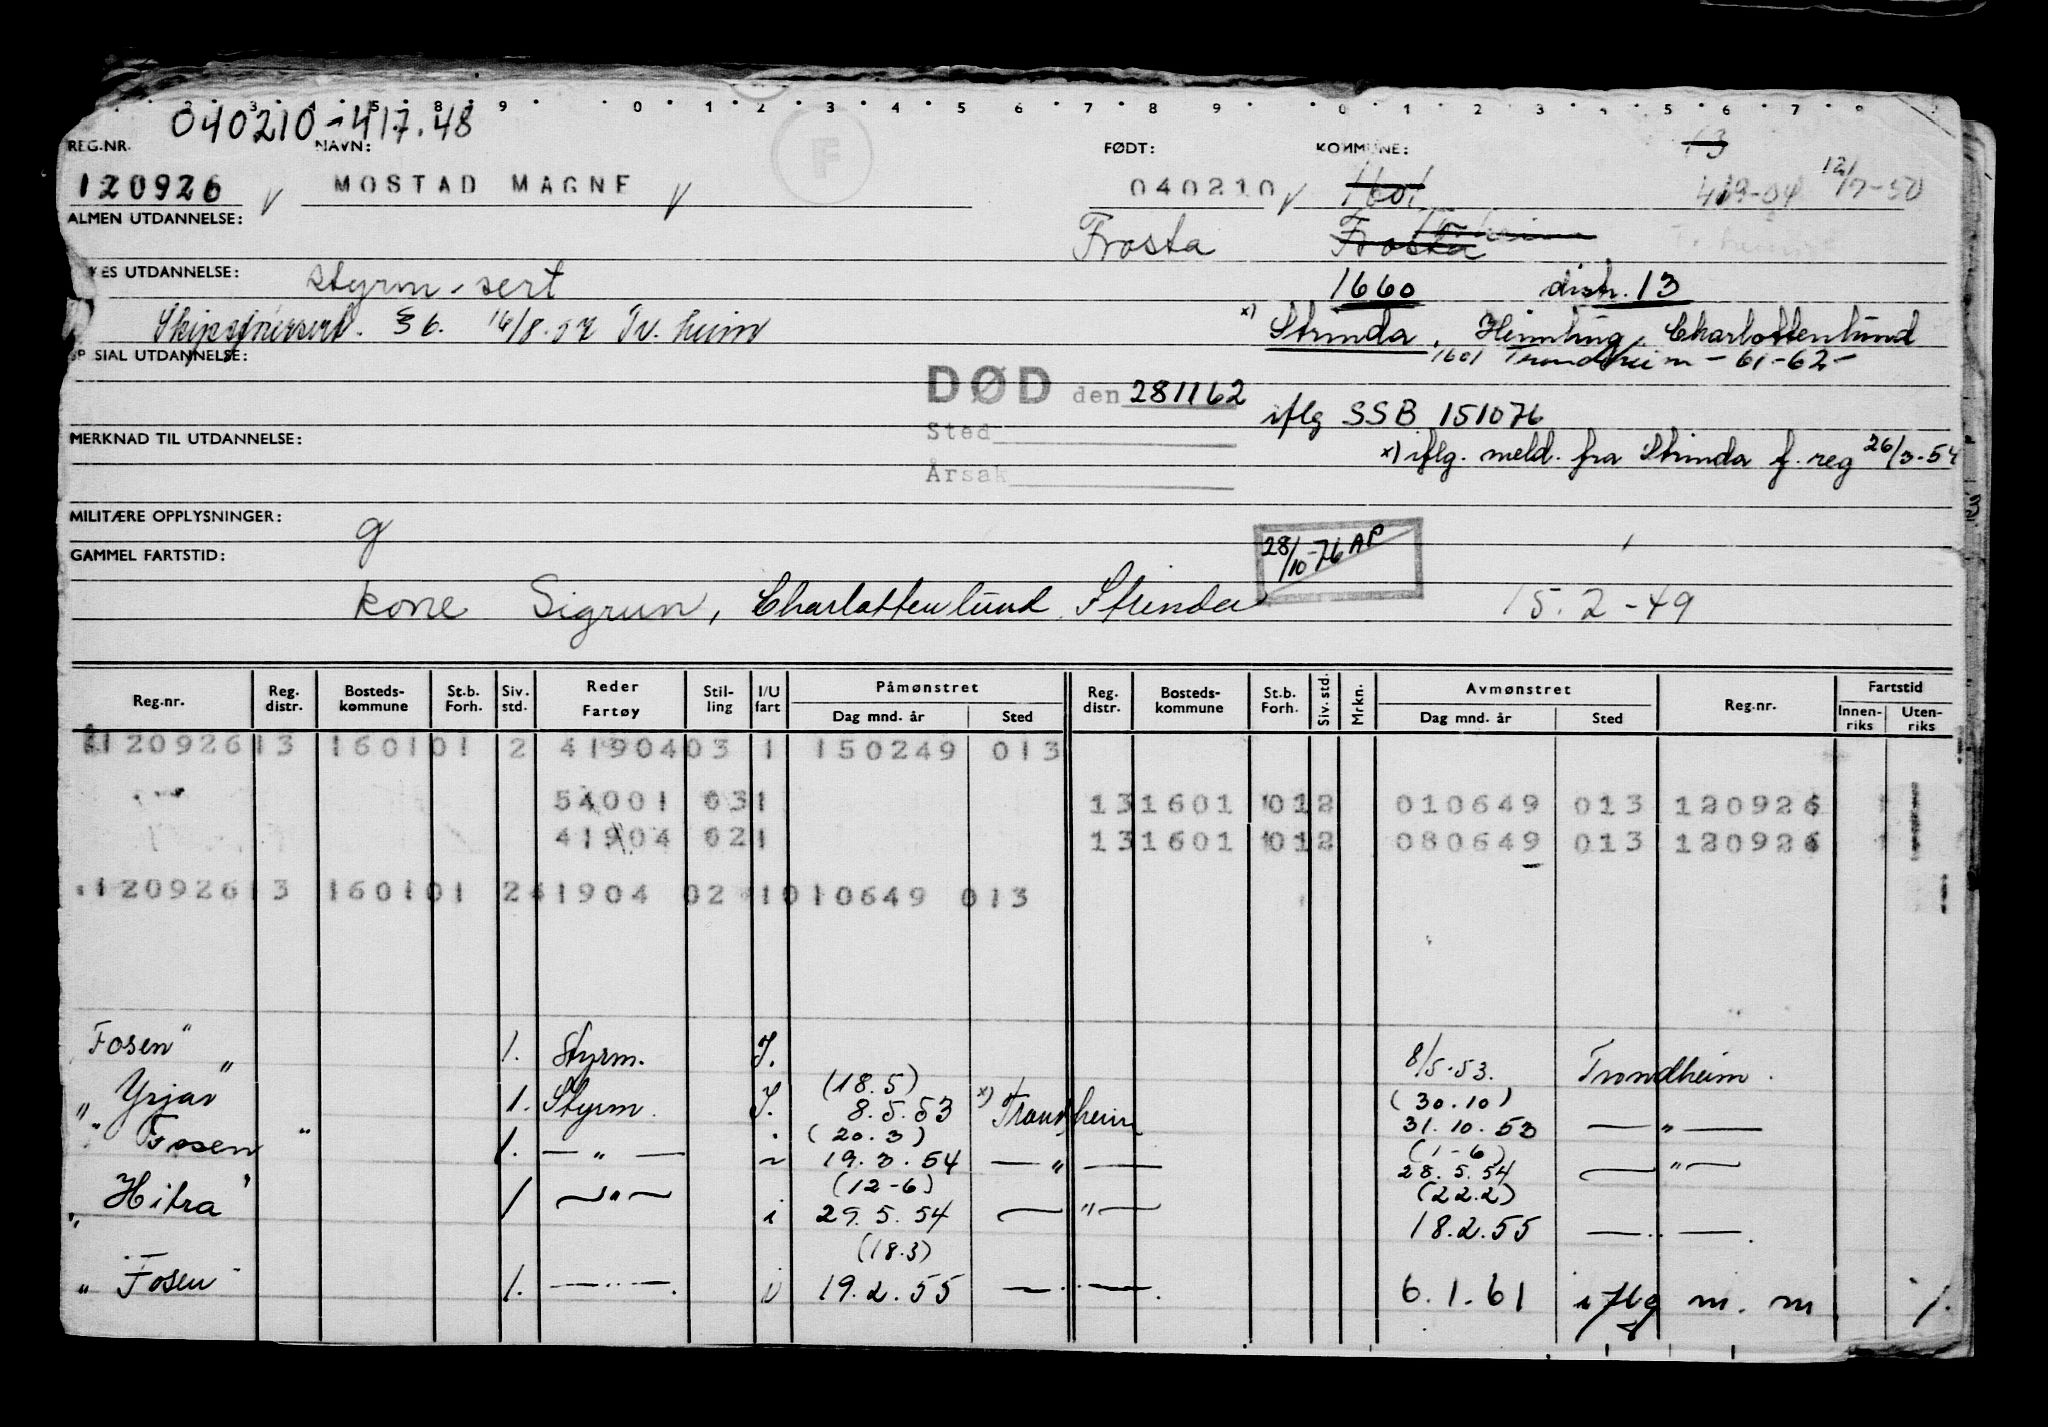 2 3 4 5 8 9 0 1 2 3 4 5 6 7 8 9 0 1 2 3 4 5 6 7
040210-417.48
REG.NR. NAVN: FØDT: KOMMUNE: 13
120926 V MOSTAD MAGNE V F 040210 V 1601 419-04 12/7-50
ALMEN UTDANNELSE: Frosta Frosta Tr.heim
UTDANNELSE: styrm-sert 1660 distr. 13
Skipsførersert. § 6. 16/8.57 Tr. heim x) Strinda, Heimling, Charlottenlund
SIAL UTDANNELSE: 1601 Trondheim -61-62-
DØD den 281162 iflg SSB 151076
Sted
MERKNAD TIL UTDANNELSE: x) iflg. meld. fra Strinda f. reg 26/3-54
Årsak
MILITÆRE OPPLYSNINGER: g
GAMMEL FARTSTID: 28/10-76 AP
kone Sigrun, Charlottenlund, Strinda 15.2-49
Reg.nr. Reg. distr. Bosteds-kommune St.b. Forh. Siv. std. Reder Fartøy Stil-ling I/U fart Påmønstret Dag mnd. år Sted Reg. distr. Bosteds-kommune St.b. Forh. Siv. std. Mrkn. Avmønstret Dag mnd. år Sted Reg.nr. Fartstid Innen-riks Uten-riks
120926 13 1601 01 2 41904 03 1 150249 013
54001 03 1 13 1601 01 2 010649 013 120926
41904 02 1 13 1601 01 2 080649 013 120926
120926 13 1601 01 2 41904 02 1 010649 013
Fosen" 1. Styrm. I. 8/5.53. Trondheim.
(18.5) (30.10)
"Yrjar" 1. Styrm. I. 8.5.53 x) Trondheim 31.10.53 — " —
(20.3) (1-6)
"Fosen" 1. — " — 19.3.54 — " — 28.5.54 — " —
(12-6) (22.2)
"Hitra" 1 — " — i 29.5.54 — " — 18.2.55 — " —.
(18.3)
"Fosen" 1. — " —. i 19.2.55 — " —. 6.1.61 iflg m. m 1.